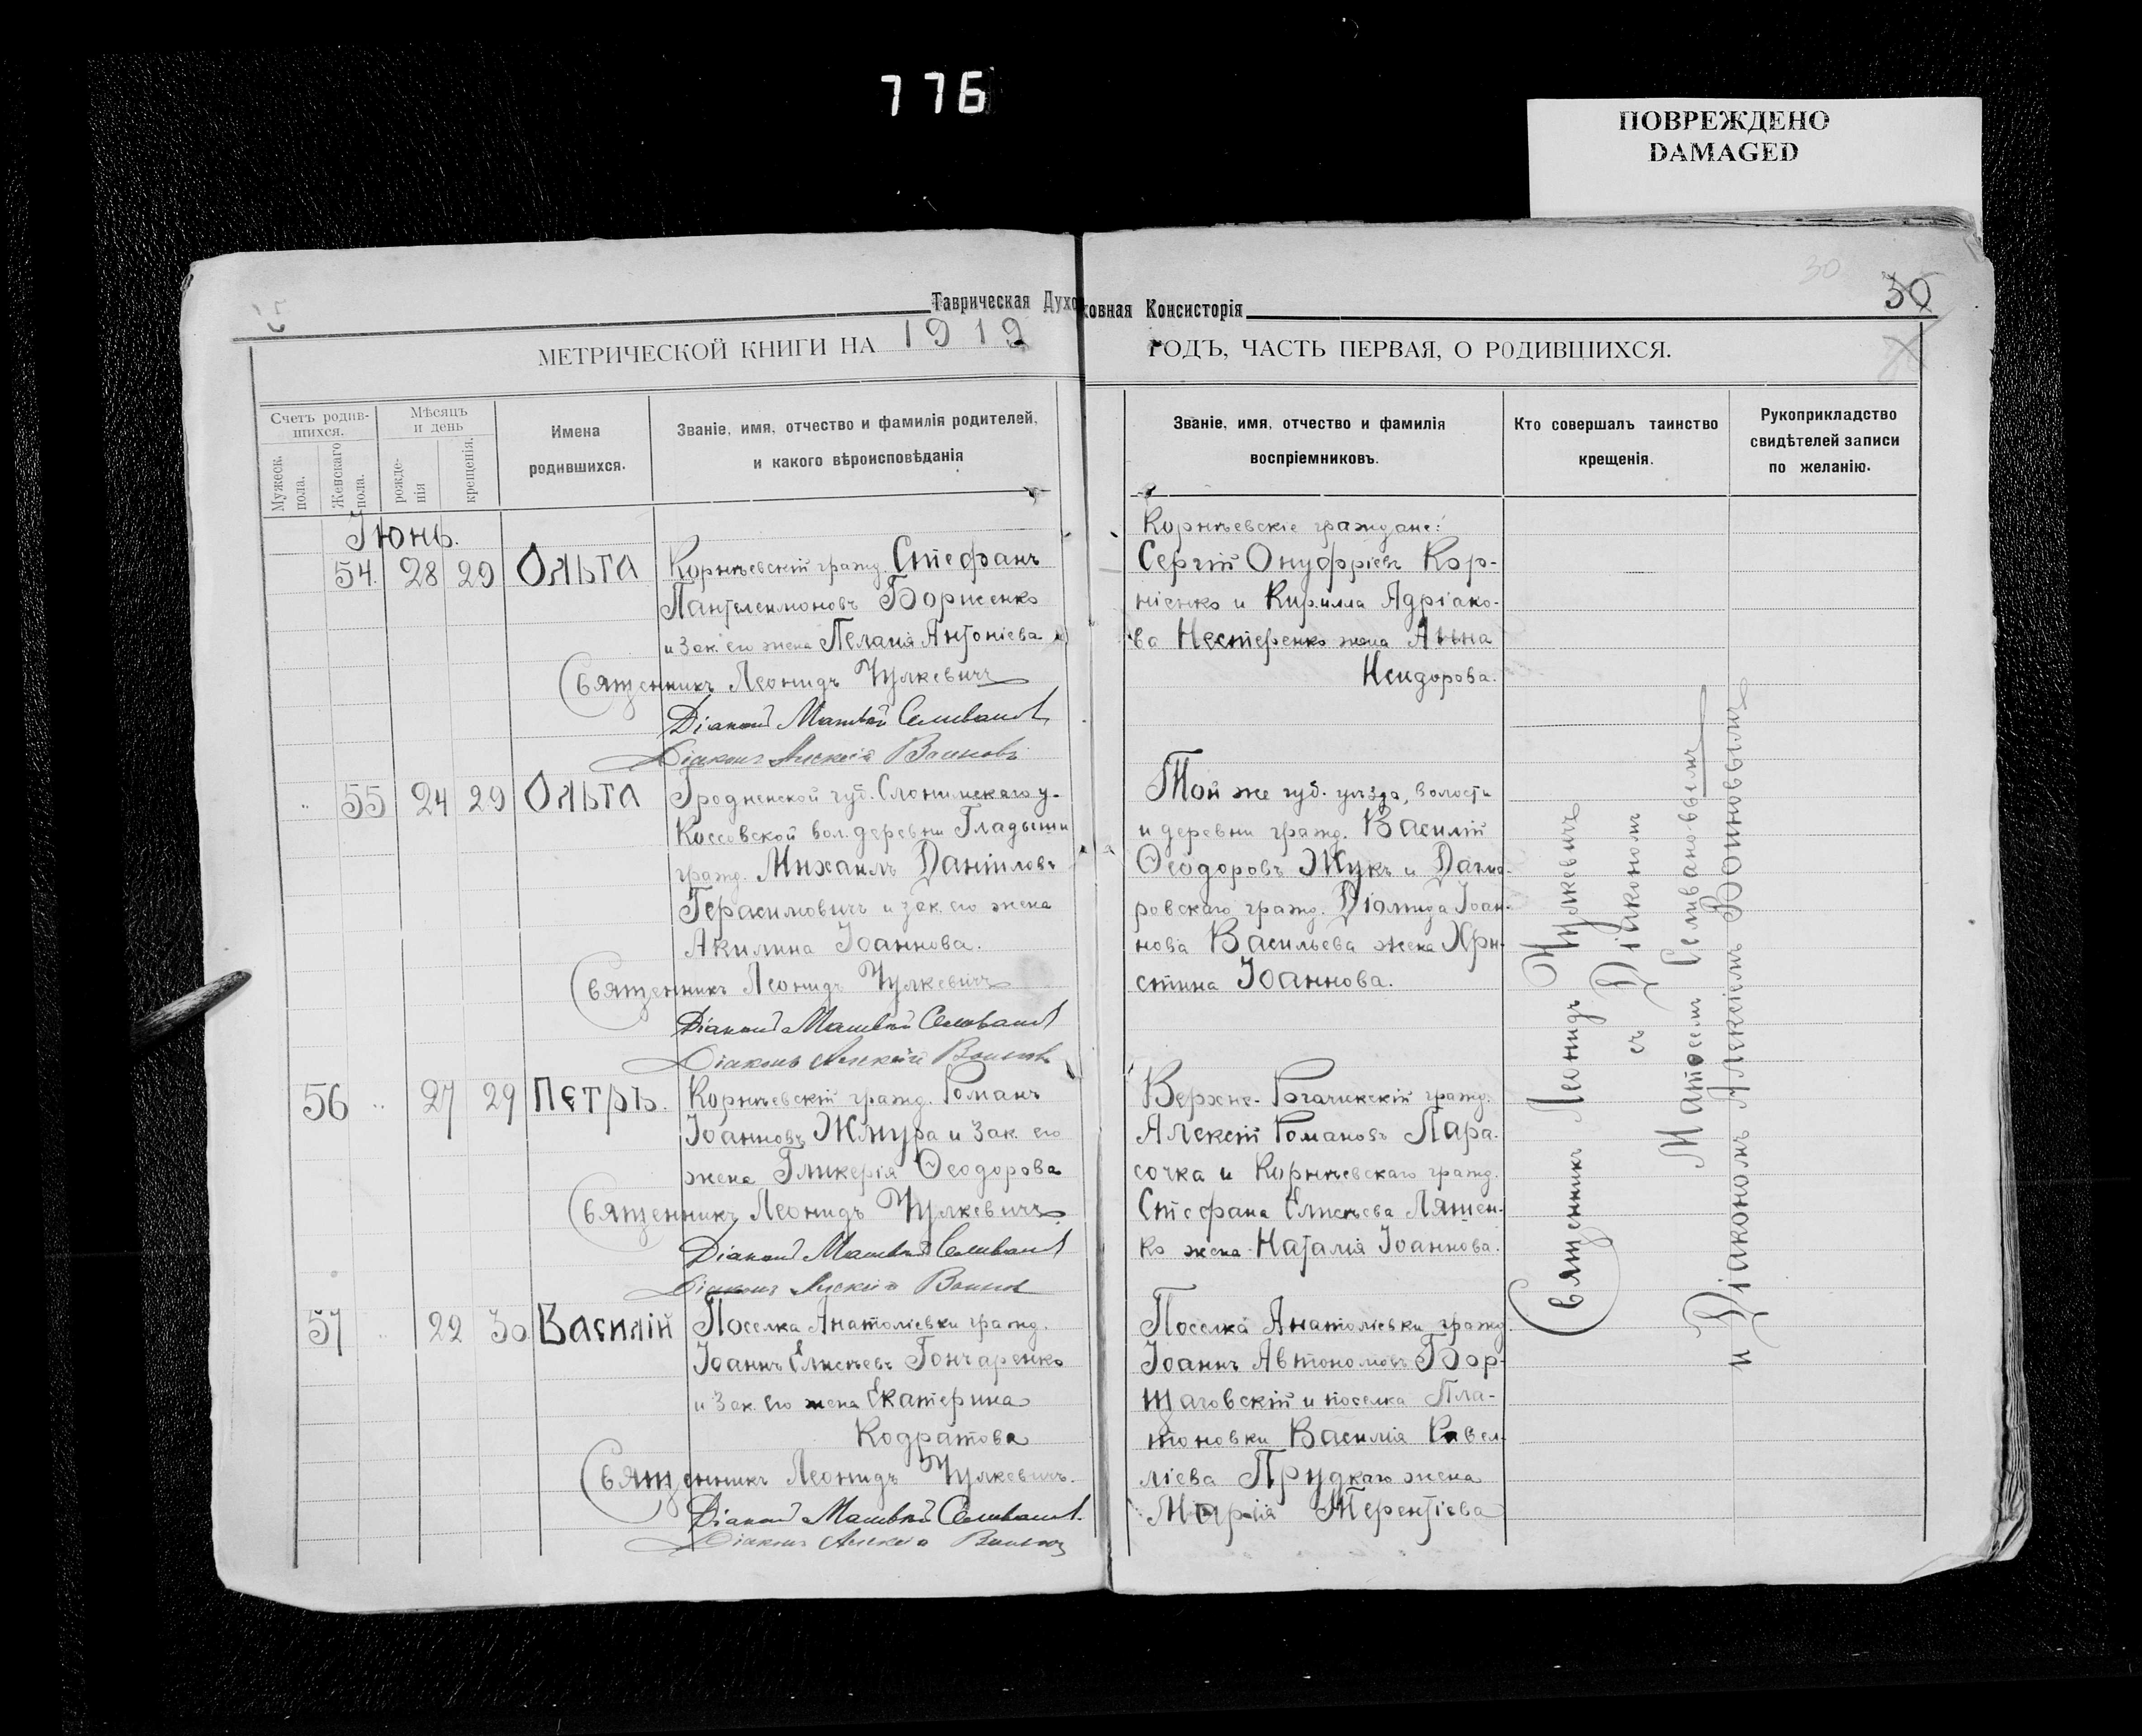 776
ПОВРЕЖДЕНО
DAMAGED
30
30
Таврическая Духовная Консисторія
МЕТРИЧЕСКОЙ КНИГИ НА 1919 ГОДЪ, ЧАСТЬ ПЕРВАЯ, О РОДИВШИХСЯ.
Счетъ родив-
шихся.
Мужеск. пола.
Женскаго пола.
Мѣсяцъ
и день
рожде-
нія
крещенія.
Имена
родившихся.
Званіе, имя, отчество и фамилія родителей,
и какого вѣроисповѣданія
Званіе, имя, отчество и фамилія
воспріемниковъ.
Кто совершалъ таинство
крещенія.
Рукоприкладство
свидѣтелей записи
по желанію.
Іюнь.
54. 28 29 Ольга
Корнѣевскій гражд. Стефанъ
Пантелеимоновъ Борисенко
и зак. его жена Пелагія Антоніева
Священникъ Леонидъ Чулкевичъ
Діаконъ Матвѣй Селивановъ
Діаконъ Алексій Воиновъ
Корнѣевскіе граждане:
Сергій Онуфріевъ Кор-
ніенко и Кирилла Адріано-
ва Нестеренко жена Анна
Исидорова.
55 24 29 Ольга
Гродненской губ. Слонимскаго у.
Коссовской вол. деревни Гладыши
гражд. Михаилъ Даніиловъ
Герасимовичъ и зак. его жена
Акилина Іоаннова.
Священникъ Леонидъ Чулкевичъ
Діаконъ Матвѣй Селивановъ
Діаконъ Алексій Воиновъ
Той же губ. уѣзда, волости
и деревни гражд. Василій
Ѳеодоровъ Жукъ и
ровскаго гражд. Діомида Іоан-
нова Васильева жена Хри-
стина Іоаннова.
56 27 29 Петръ.
Корнѣевскій гражд. Романъ
Іоанновъ Жмура и зак. его
жена Гликерія Ѳеодорова
Священникъ Леонидъ Чулкевичъ
Діаконъ Матвѣй Селивановъ
Діаконъ Алексій Воиновъ
Верхне-Рогачикскій гражд.
Алексій Романовъ Пара-
сочка и Корнѣевскаго гражд.
Стефана Елисѣева Ляшен-
ко жена Наталія Іоаннова.
57 22 30 Василій
Поселка Анатоліевки гражд.
Іоаннъ Елисѣевъ Гончаренко
и зак. его жена Екатерина
Кодратова
Священникъ Леонидъ Чулкевичъ.
Діаконъ Матвѣй Селивановъ.
Діаконъ Алексій Воиновъ
Поселка Анатоліевки гражд.
Іоаннъ Автономовъ Бор-
щаговскій и поселка Пла-
тоновки Василія Савел-
ліева Прудкаго жена
Марія Терентіева
Священникъ Леонидъ Чулкевичъ
съ Діакономъ
Матѳеемъ Селивановымъ
и Діакономъ Алексіемъ Воиновымъ